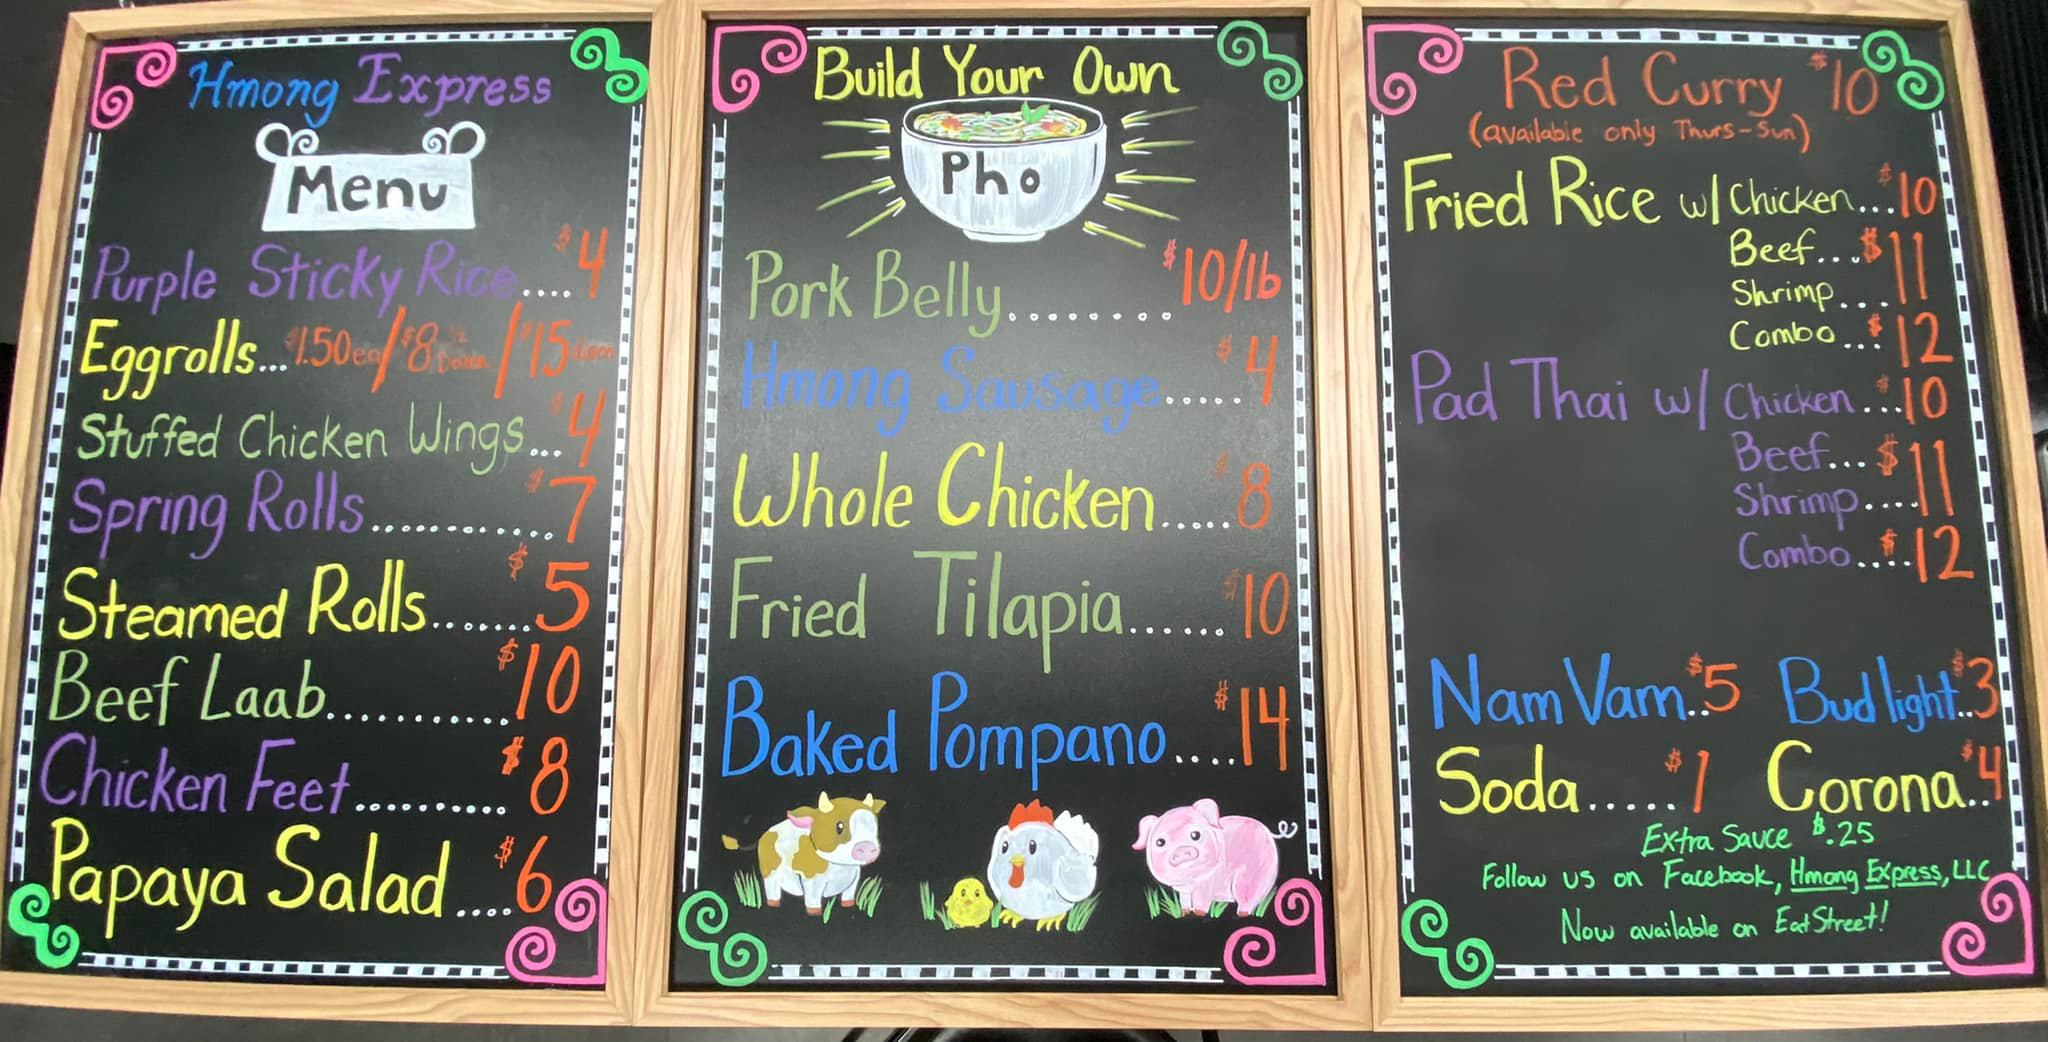 Hmong Express
Menu
Purple Sticky Rice....$4
Eggrolls...$1.50ea/$8 1/2 Dozen/$15 dozen
Stuffed Chicken Wings...$4
Spring Rolls...........$7
Steamed Rolls.......$5
Beef Laab...........$10
Chicken Feet..........$8
Papaya Salad....$6
Build Your Own
Pho
Pork Belly........$10/lb
Hmong Sausage.....$4
Whole Chicken.....$8
Fried Tilapia......$10
Baked Pompano....$14
Red Curry $10
(available only Thurs-Sun)
Fried Rice w/ Chicken...$10
Beef....$11
Shrimp....11
Combo...$12
Pad Thai w/ Chicken...$10
Beef...$11
Shrimp....11
Combo....$12
Nam Vam..$5 Bud light..$3
Soda.....$1 Corona..$4
Extra Sauce $.25
Follow us on Facebook, Hmong Express, LLC
Now available on EatStreet!